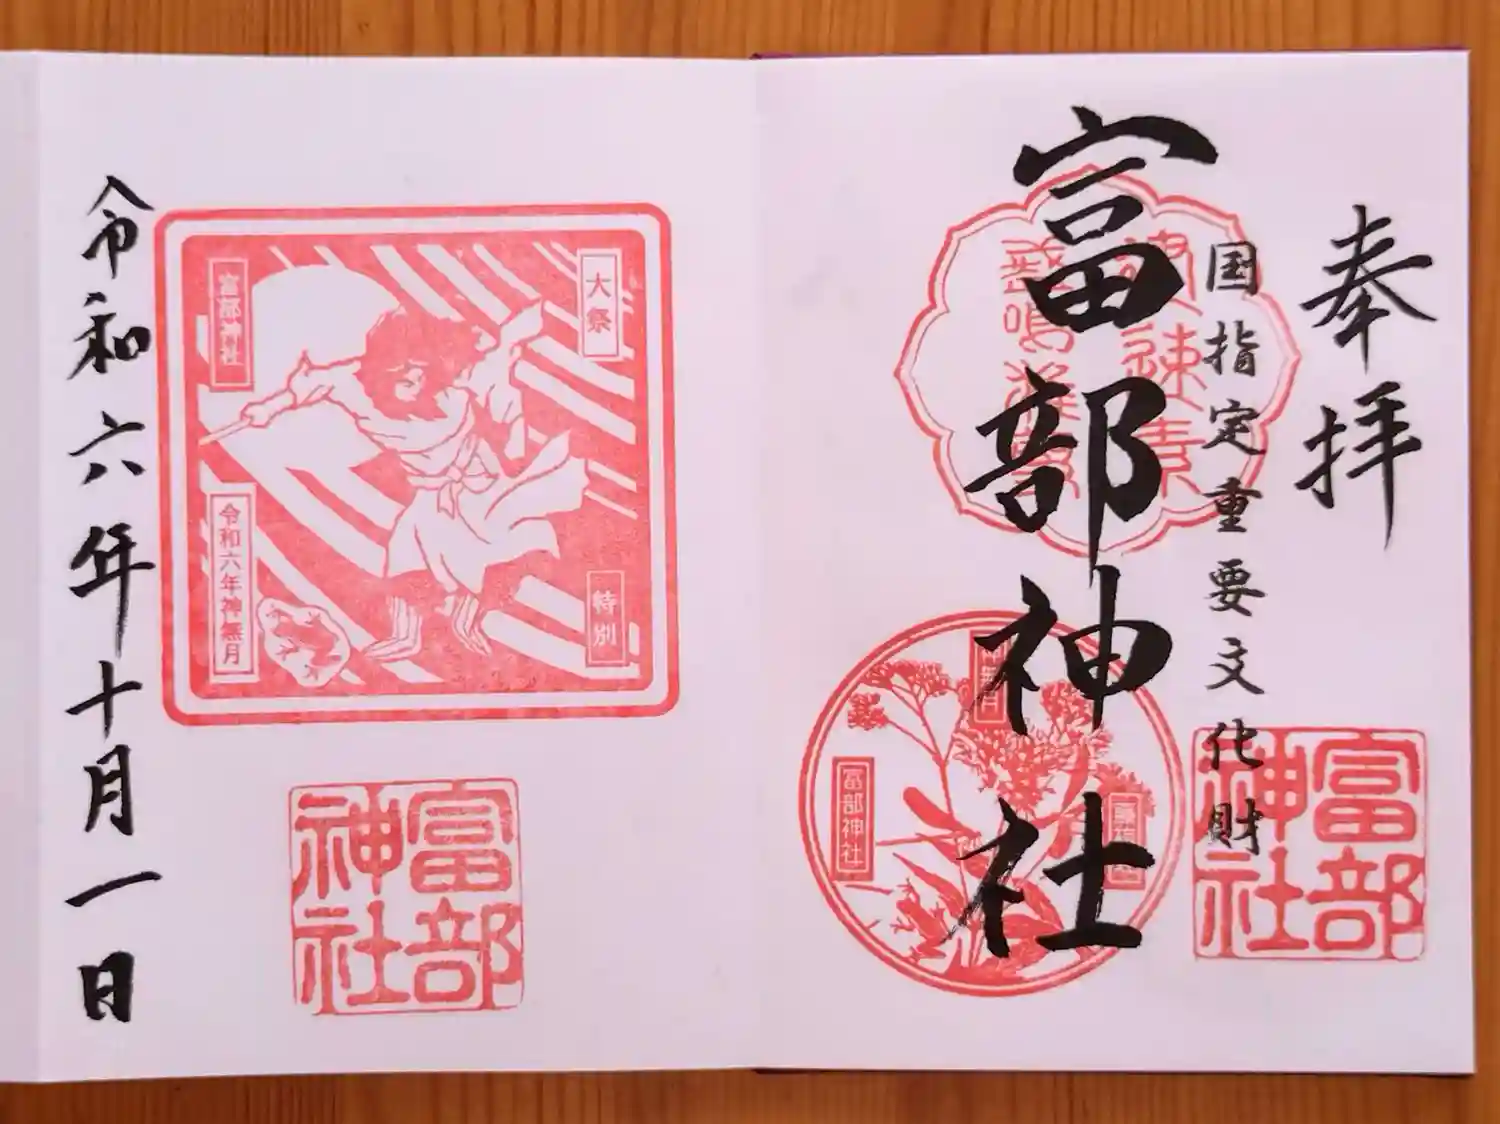 奉拝
国指定重要文化財
富部神社
富部神社
富部神社
大祭
特別
富部神社
令和六年神無月
富部神社
令和六年十月一日